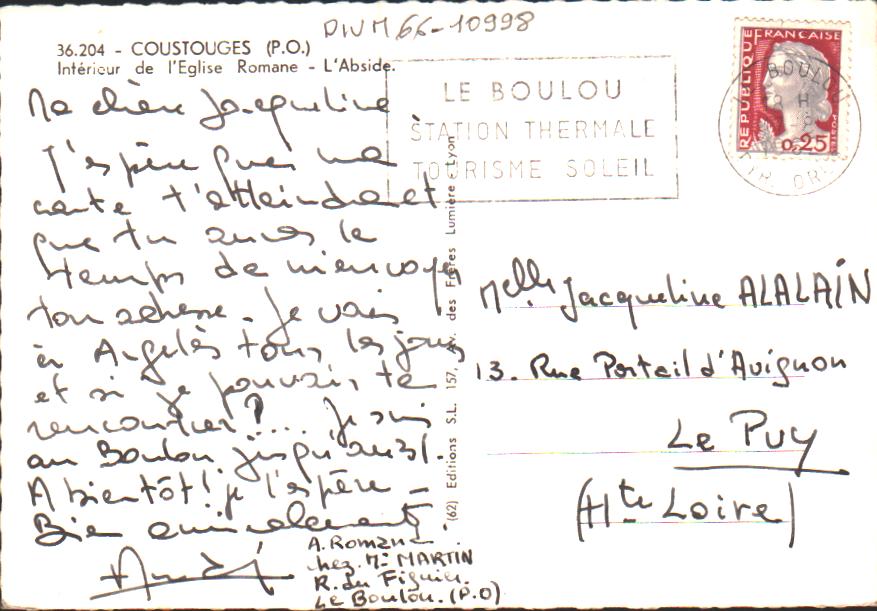 DIV M 66-10998
36.204 - COUSTOUGES (P.O.)
Intérieur de l'Eglise Romane - L'Abside.
LE BOULOU
STATION THERMALE
TOURISME SOLEIL
REPUBLIQUE FRANCAISE
POSTES
0,25
LE BOULOU
Ma chère Jacqueline
J'espère que ma
carte t'atteindra et
que tu auras le
temps de m'envoyer
ton adresse. Je vais
à Argelès tous les jours
et si je pouvais te
rencontrer ?.... Je suis
au Boulou jusqu'au 31.
A bientôt ! je l'espère -
Bien amicalement.
André
A. Roman
chez Mr MARTIN
R. du Figuier
Le Boulou. (P.O)
(62) Editions S.L. 157, Av. des Frères Lumière - Lyon
Melle Jacqueline ALALAIN
13. Rue Portail d'Avignon
Le Puy
(Hte Loire)